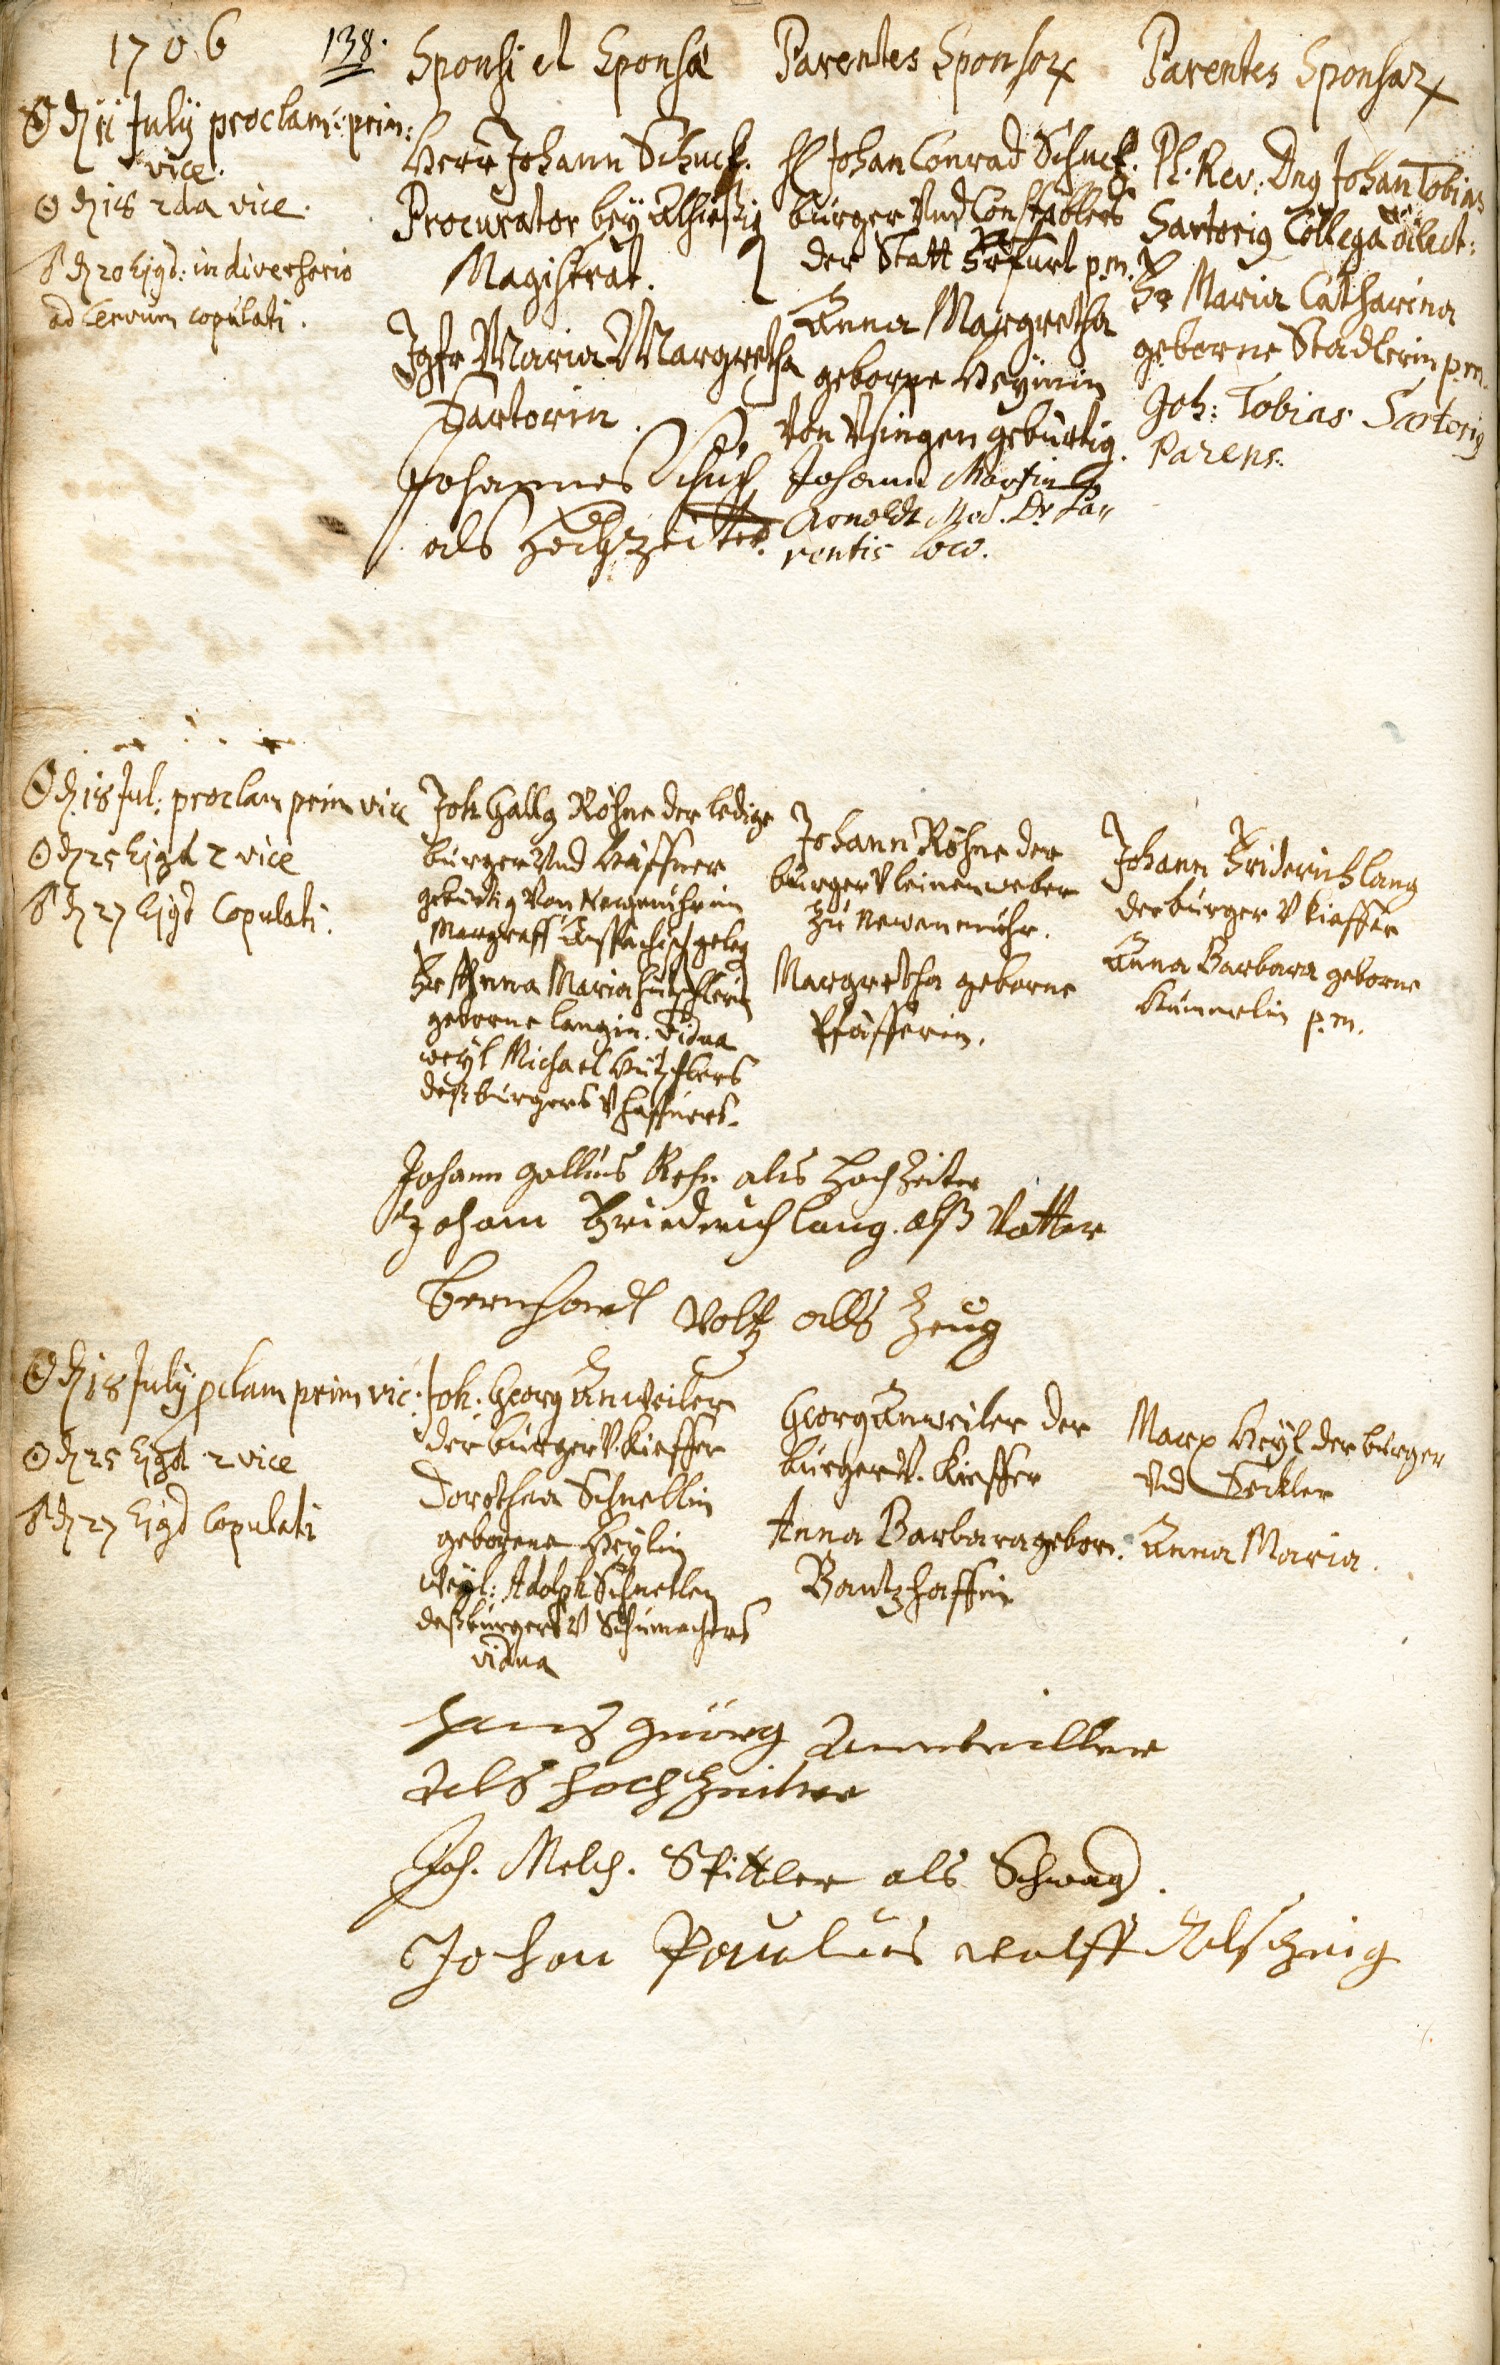 1706
138.
Sponsi et Sponsæ
Parentes Sponsor
Parentes Sponsar
☉ d 11 July proclam: prim:
vice.
☉ d 18 2da vice.
♂ d 20 Ejsd: in diverserio
ad Cervum copulati.
Herr Johann Schuck.
Procurator bey Alhiesig
Magistrat.
Jgfr Maria Margretha
Sartorin.
Johannes Schuck
als Hochzeitter.
H Johan Conrad Schuck.
burger Vnd Constablers
der Statt Erfurt p.m.
Anna Margretha
geborne Heymin
Von Vsingen gebürtig.
Johann Martin
Arnoldt Med. Dr Pa„
rentis loco.
Pl. Rev: Dng Johan Tobias
Sartorig Collega dilect:
Fr Maria Catharina
geborne Stadlerin p.m.
Joh: Tobias Sartorig
Parens.
☉ d 18 Jul: proclam prim vice
☉ d 25 Ejsd 2 vice
♂ d 27 Ejsd Copulati.
Joh Gallg Röhne der ledige
burger Vnd Häffner
gebürtig Von
Marggraff Anspachisch
Fr Anna Maria
geborne Langin. Vidua
weyl Michael
deß burgers V haffners.
Johann Röhne der
burger V leinenweber
zu Newenmuhr.
Margretha geborne
Pfäfferin.
Johann Friderich Lang
der burger V Kieffer
Anna Barbara geborne
Kümmerlin p.m.
Johann Gallus Rehn als Hochzeiter
Johann Friederich Lang. alß Vatter
Bernhardt Voltz alls Zeug
☉ d 18 July pclam prim vic.
☉ d 25 Ejsd 2 vice
♂ d 27 Ejsd Copulati
Joh. Georg Anweiler
der burger V. Kieffer
Dorothea Schnellin
gebogene Heylin
Weyl: Adolph Schnellen
deß burgers V Schumachers
vidua
Georg Anweiler der
burger V. Kieffer
Anna Barbara gebor.
Bantzhaffin
Marx Heyl der burger
Vnd Seckler
Anna Maria.
Hans Georg Annweiller
Als Hochzeiter
Joh. Melch. Spittler als Schwag.
Johan Paulus Wolff Als Zeug